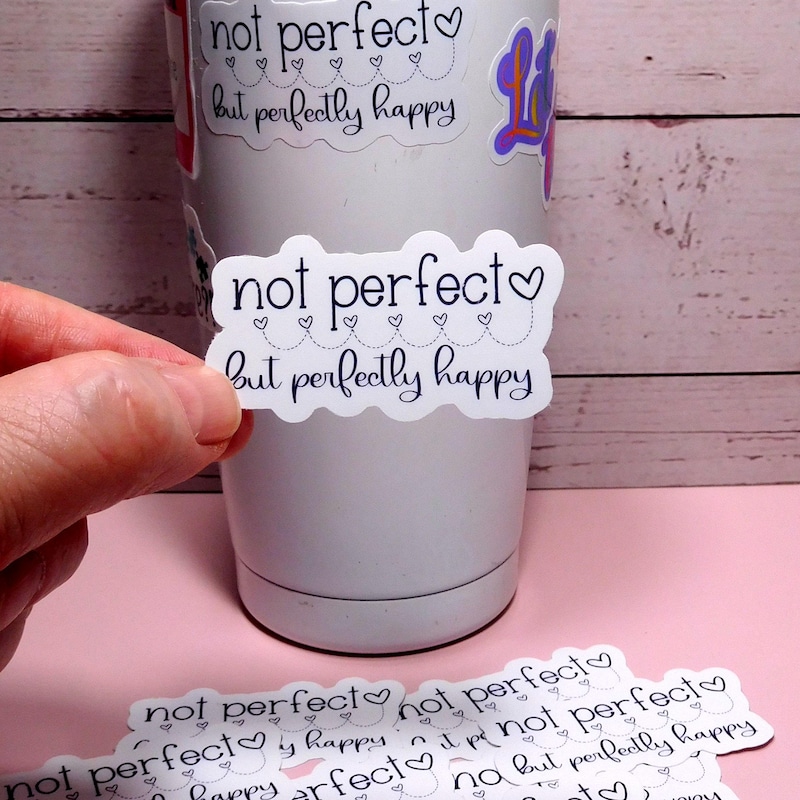 not perfect
but perfectly happy
not perfect
but perfectly happy
not perfect
y happy
not perfect
not perfect
but perfectly happy
not perfect
happy
erfect
no
happy